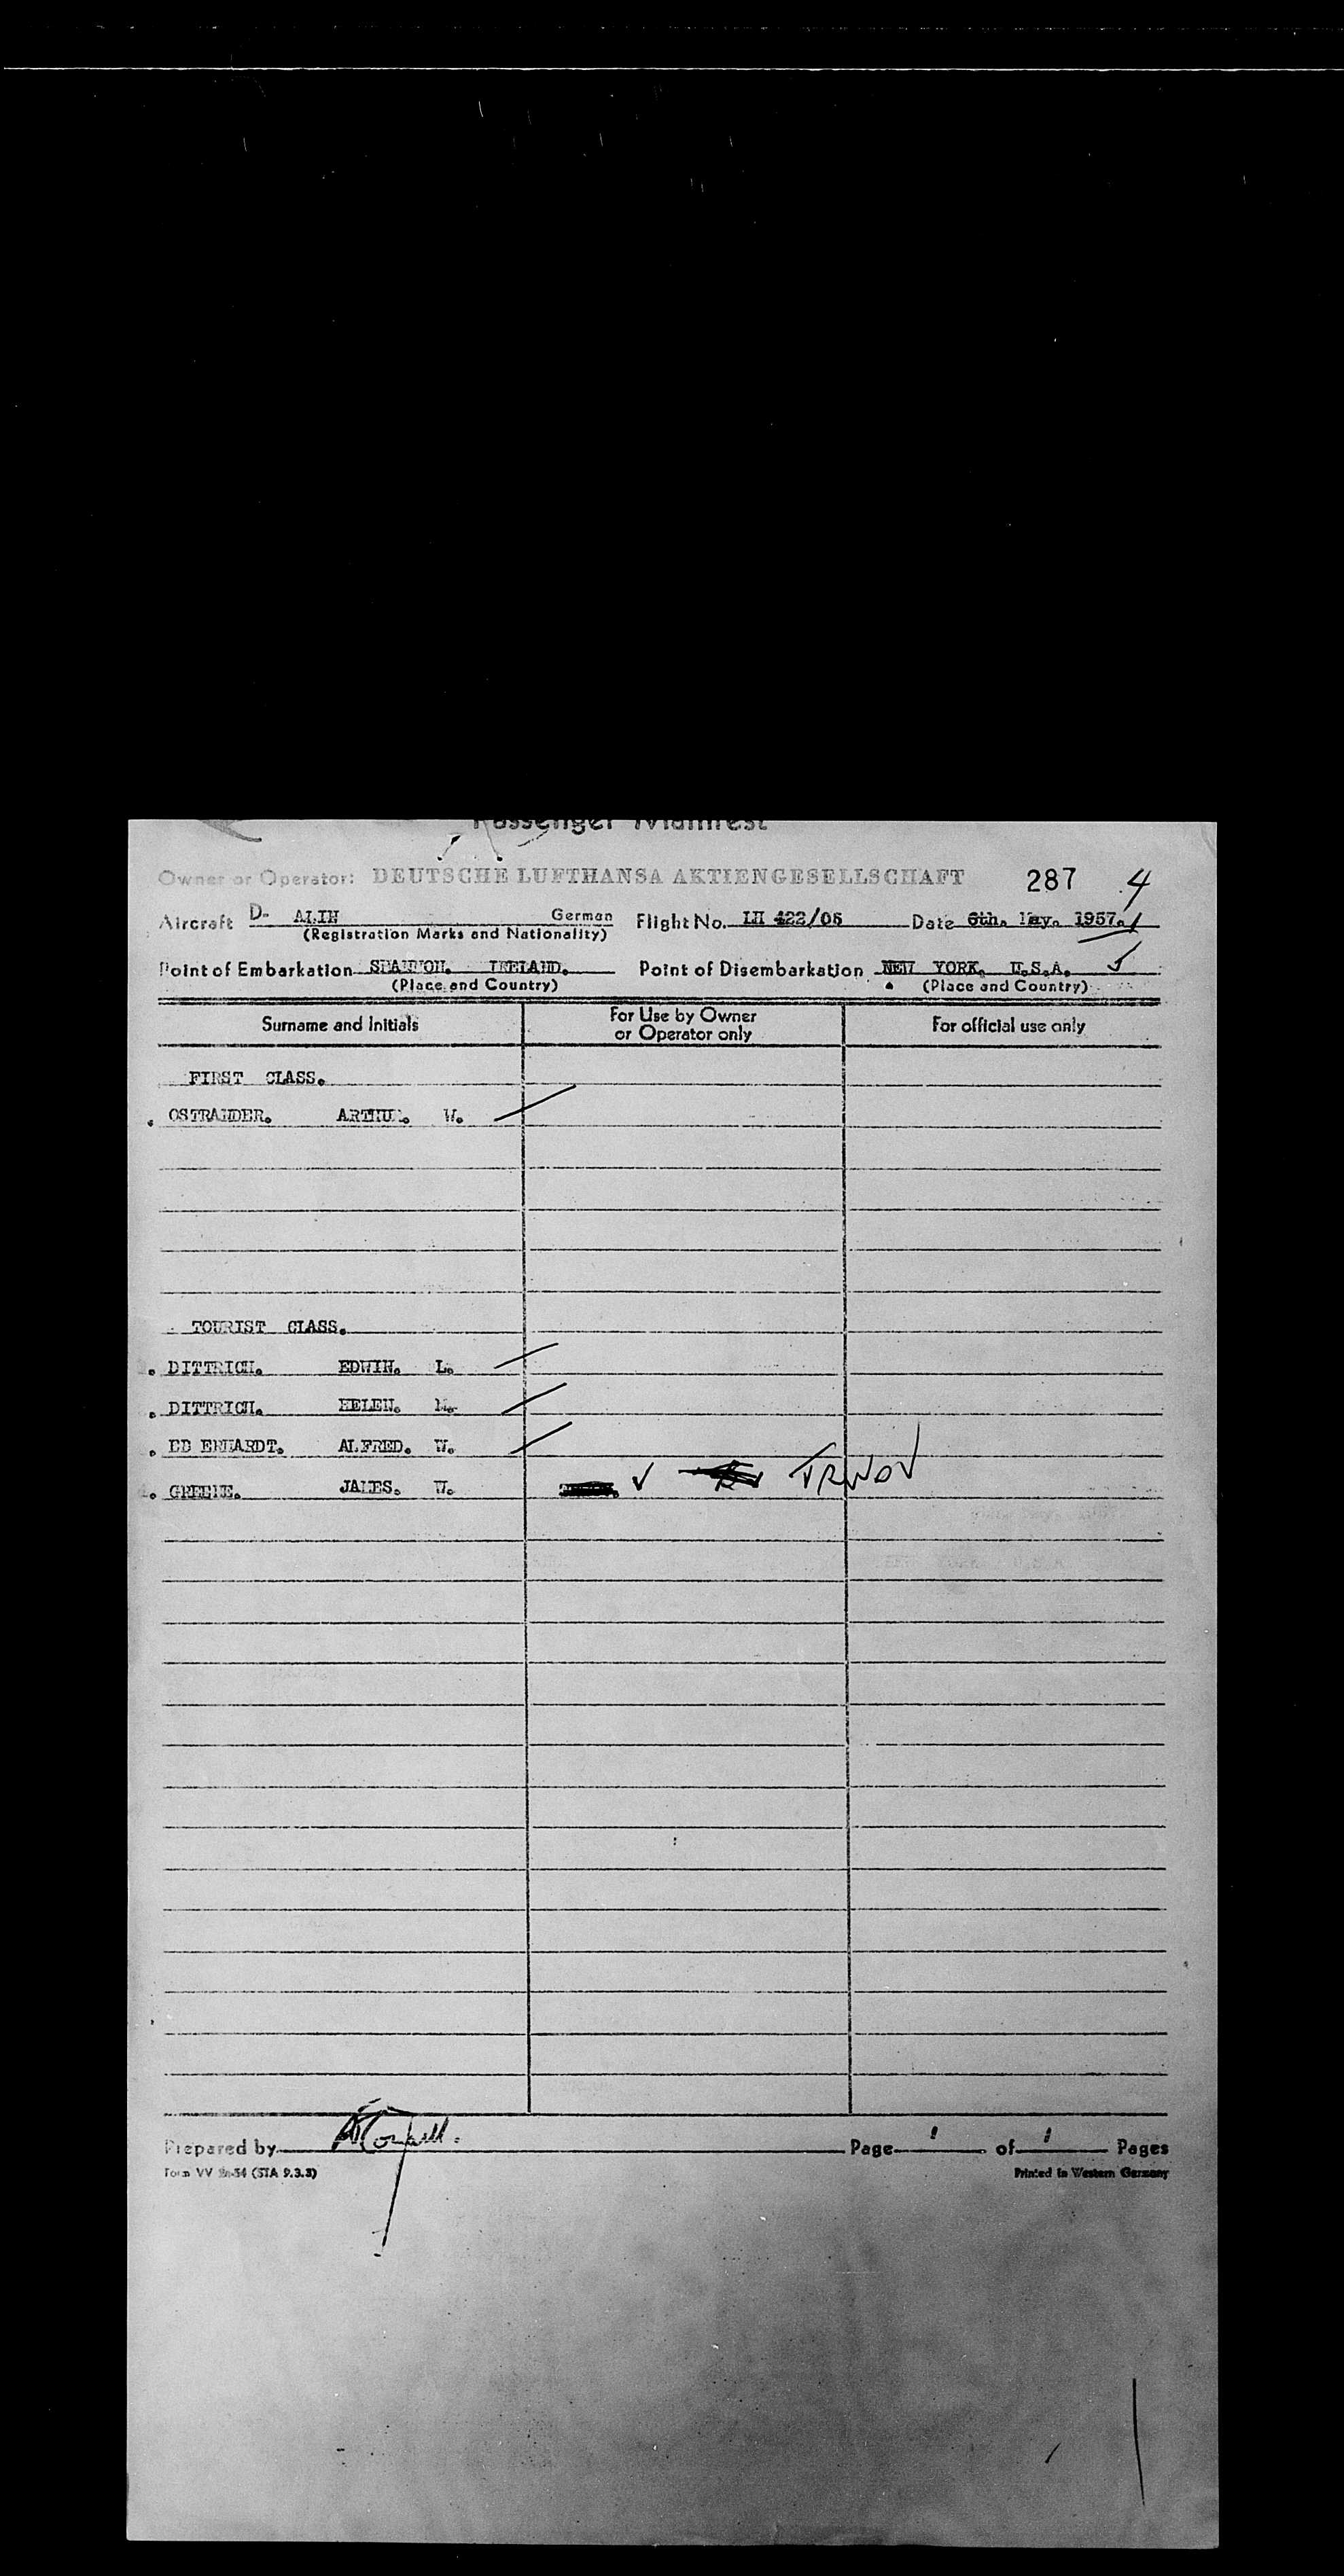 Passenger Manifest
Owner or Operator: DEUTSCHE LUFTHANSA AKTIENGESELLSCHAFT 287 4
Aircraft D- ALIN German Flight No. LH 422/06 Date 6th. May. 1957.
(Registration Marks and Nationality)
Point of Embarkation SHANNON. IRELAND. Point of Disembarkation NEW YORK. U.S.A.
(Place and Country) (Place and Country)
Surname and Initials For Use by Owner or Operator only For official use only
FIRST CLASS.
OSTRANDER. ARTHUR. W.
TOURIST CLASS.
DITTRICH. EDWIN. L.
DITTRICH. HELEN. M.
EB ERHARDT. ALFRED. W.
GREENE. JAMES. W. TRWOV
Prepared by Page 1 of 1 Pages
Form VV 2a-54 (STA 9.3.3) Printed in Western Germany